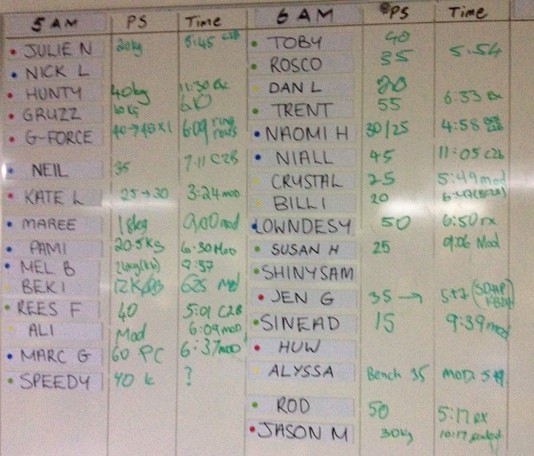 5 AM PS Time
JULIE N 20kg 5:45 C2B
NICK L
HUNTY 40kg 11:30
GRUZZ
G-FORCE 6:09 ring rows
NEIL 35 7:11 C2B
KATE L 25→30 3:24 mod
MAREE 18kg 9:00 mod
PAMI 20.5kg 6:30 Mod
MEL B 9:57
BEKI 12KGB 625 mod
REES F 40 5:01 C2B
ALI Mod 6:09 mod
MARC G 60 PC 6:37 mod
SPEEDY 40 k ?
6 AM PS Time
TOBY 40
ROSCO 35 5:54
DAN L 20
TRENT 55 6:33 rx
NAOMI H 30/25 4:58
NIALL 45 11:05 C2B
CRYSTAL 25 5:49 mod
BILLI 20
LOWNDESY 50 6:50 rx
SUSAN H 25 9:06 Mod
SHINYSAM
JEN G 35 →
SINEAD 15 9:39 mod
HUW
ALYSSA Bench 35 mod
ROD 50 5:17 rx
JASON M 30kg 10:17